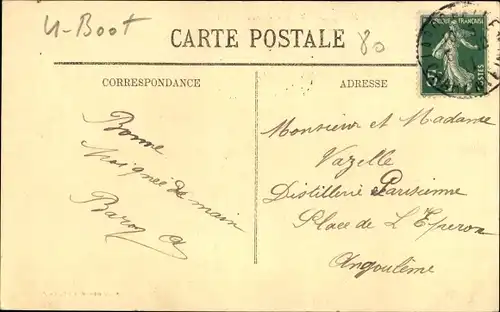 U-Boot
CARTE POSTALE
80
CORRESPONDANCE
ADRESSE
Bonne
Poignée de main
Baron
Monsieur et Madame
Vazelle
Distillerie Parisienne
Place de L'Eperon
Angoulême
POSTES